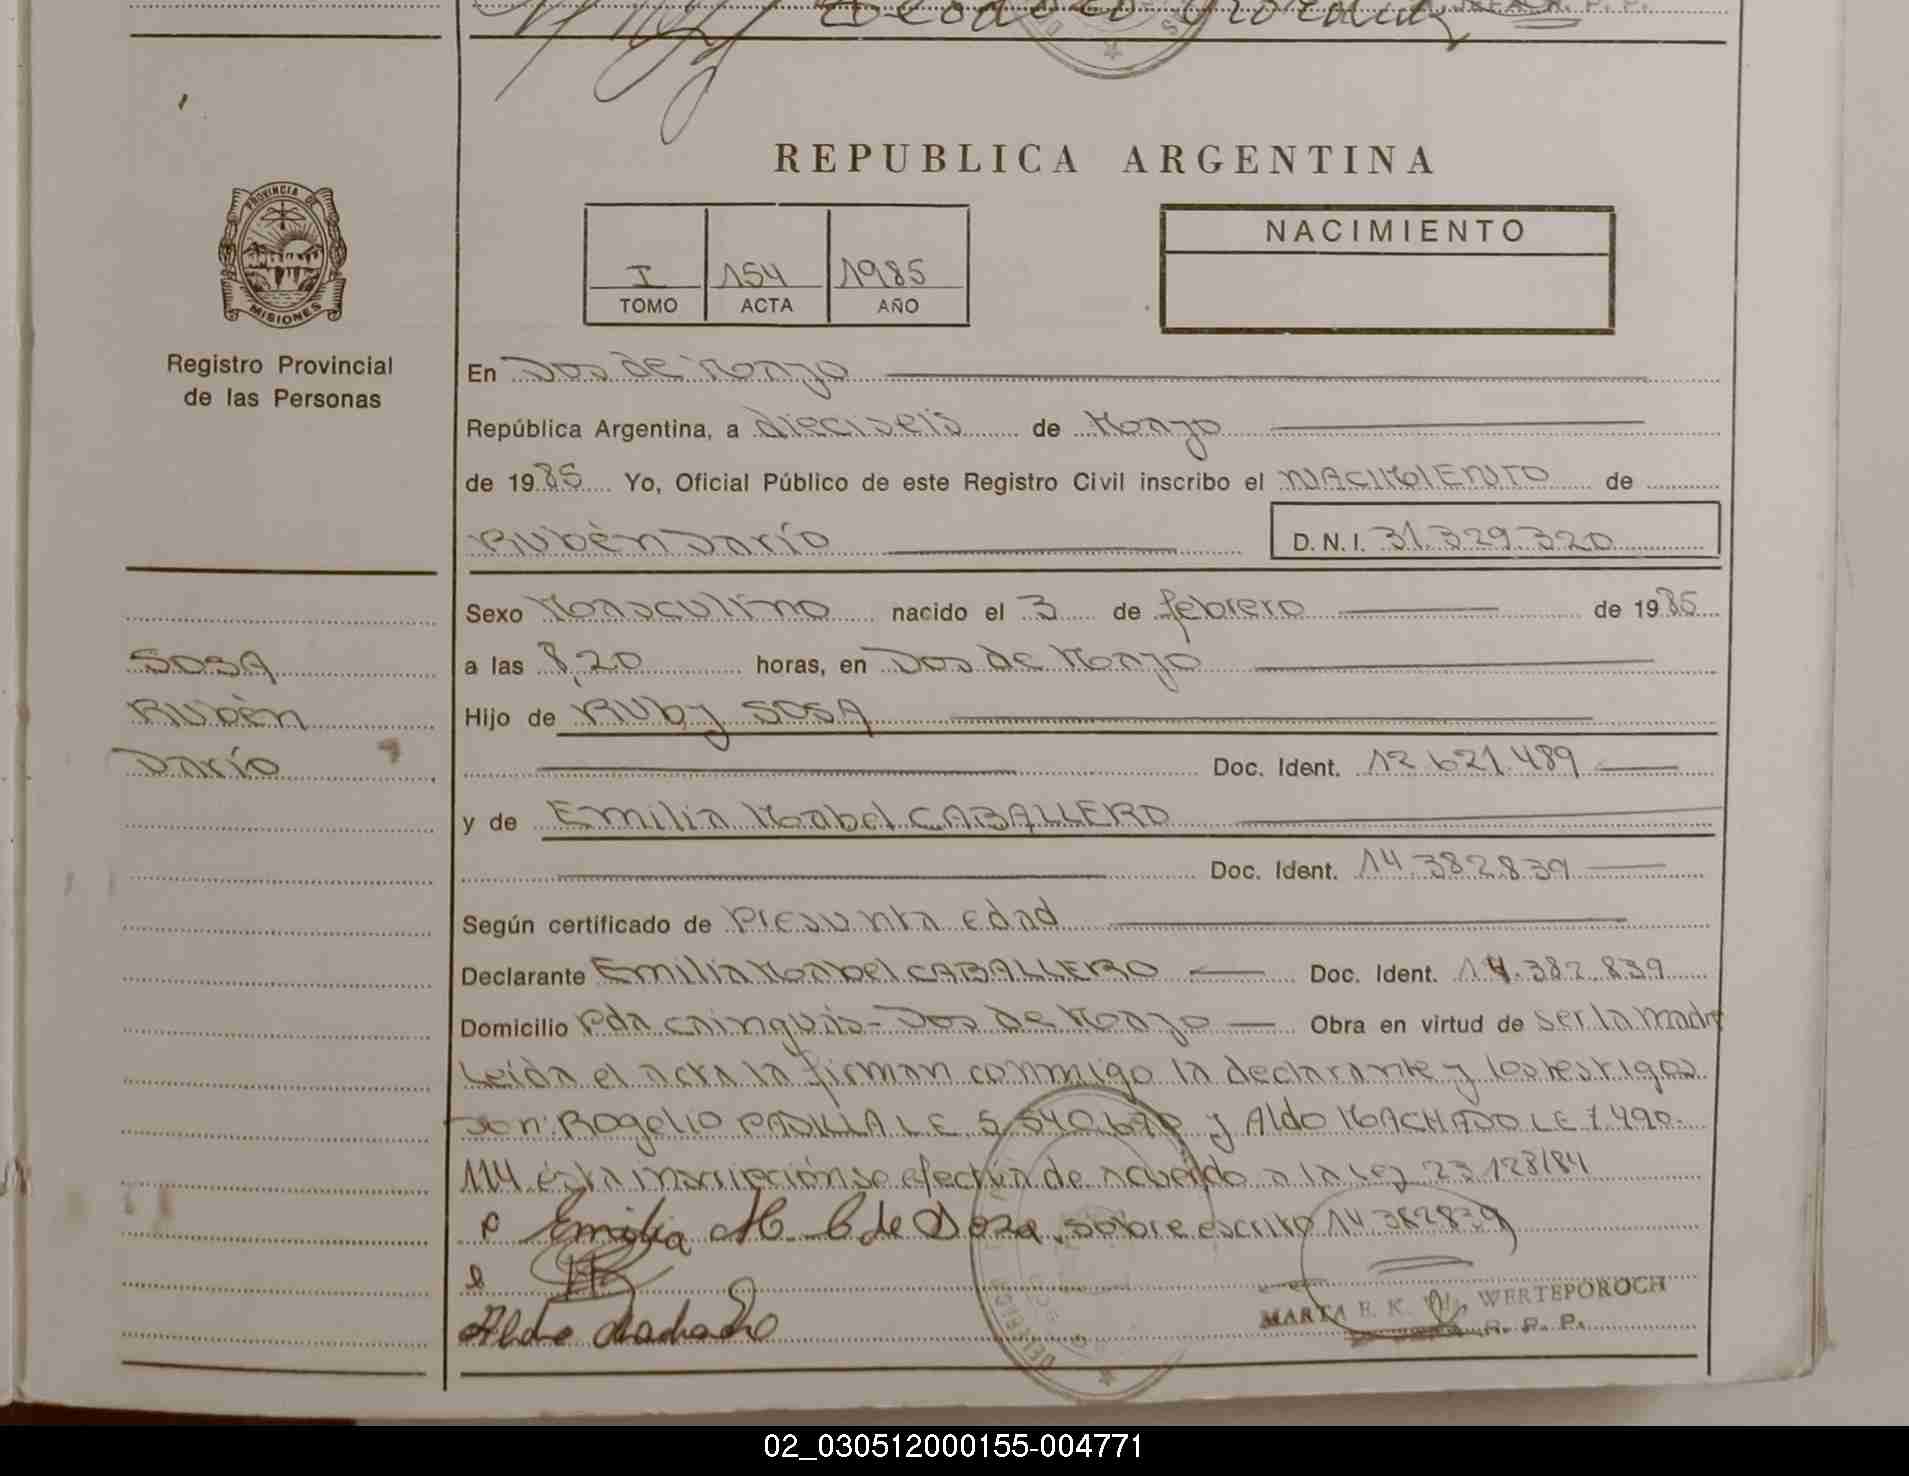 REPUBLICA ARGENTINA
PROVINCIA DE
MISIONES
Registro Provincial
de las Personas
I 154 1985
TOMO ACTA AÑO
NACIMIENTO
En Dos de Mayo
República Argentina, a dieciseis de Mayo
de 1985 Yo, Oficial Público de este Registro Civil inscribo el NACIMIENTO de
Rubèn Darío D.N.I. 31.329.320
Sexo Masculino nacido el 3 de febrero de 1985
SOSA
a las 8,20 horas, en Dos de Mayo
Rubèn
Hijo de Ruby SOSA
Darío
Doc. Ident. 12.621.489
y de Emilia Mabel CABALLERO
Doc. Ident. 14.382.839
Según certificado de Presunta edad
Declarante Emilia Mabel CABALLERO Doc. Ident. 14.382.839
Domicilio Pda Cainguàs - Dos de Mayo Obra en virtud de ser la madre
Leída el acta la firman conmigo la declarante y los testigos
Don: Rogelio PADILLA LE 5.540.690 y Aldo MACHADO LE 7.490.
114 ésta inscripción se efectúa de acuerdo a la Ley 23.128/84
Emilia M. C de Sosa. sobre escrito 14.382839
Aldo Machado
MARTA E. K. WERTEPOROCH
R. P. P.
02_030512000155-004771